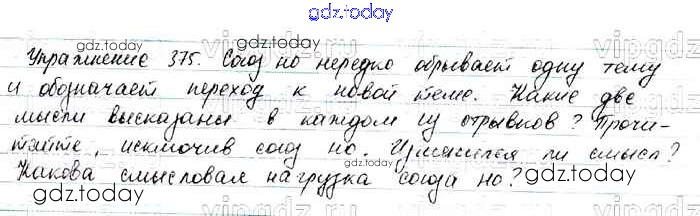 gdz.today
Упражнение 375. Союз но нередко обрывает одну тему
gdz.today
и обозначает переход к новой теме. Какие две
мысли высказаны в каждом из отрывков? Прочи-
тайте, исключив союз но. Изменился ли смысл?
gdz.today
Какова смысловая нагрузка союза но?
gdz.today
gdz.today